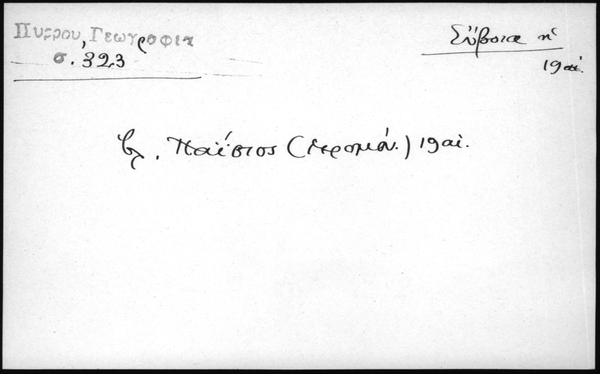 Πύρρου, Γεωγραφία
σ. 323
Εύβοια η'
19 αι.
βλ. Παΐσιος (ιερομόν.) 19 αι.